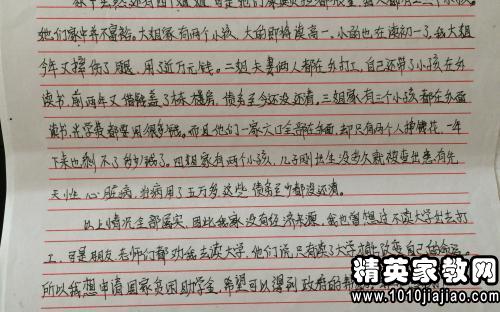 她们家中并不富裕。大姐家有两个小孩、大的即将读高一、小的也在读初一了。我大姐
今年又摔伤了腿，用了近万元钱。二姐夫妻两人都在外打工，自己还带了小孩在外
读书，前两年又借钱盖了栋楼房，债务至今还没还清。三姐家有三个小孩都在外面
读书，光学费都要用很多钱。而且他们一家六口全部在外面，却只有两个人挣钱花，一年
下来也剩不了多少钱了。四姐家有两个小孩，儿子刚出生没多久就被查出患有先
天性心脏病，为病用了五万多，这些债务至少都没还清。
以上情况全部属实，因此我家没有经济来源，我也曾想过不读大学出去打
工，可是朋友、老师们都劝我去读大学，他们说，只有读了大学才能改变自己的命运。
所以我想申请国家贫困助学金，希望可以得到政府的帮
精英家教网
www.1010jiajiao.com